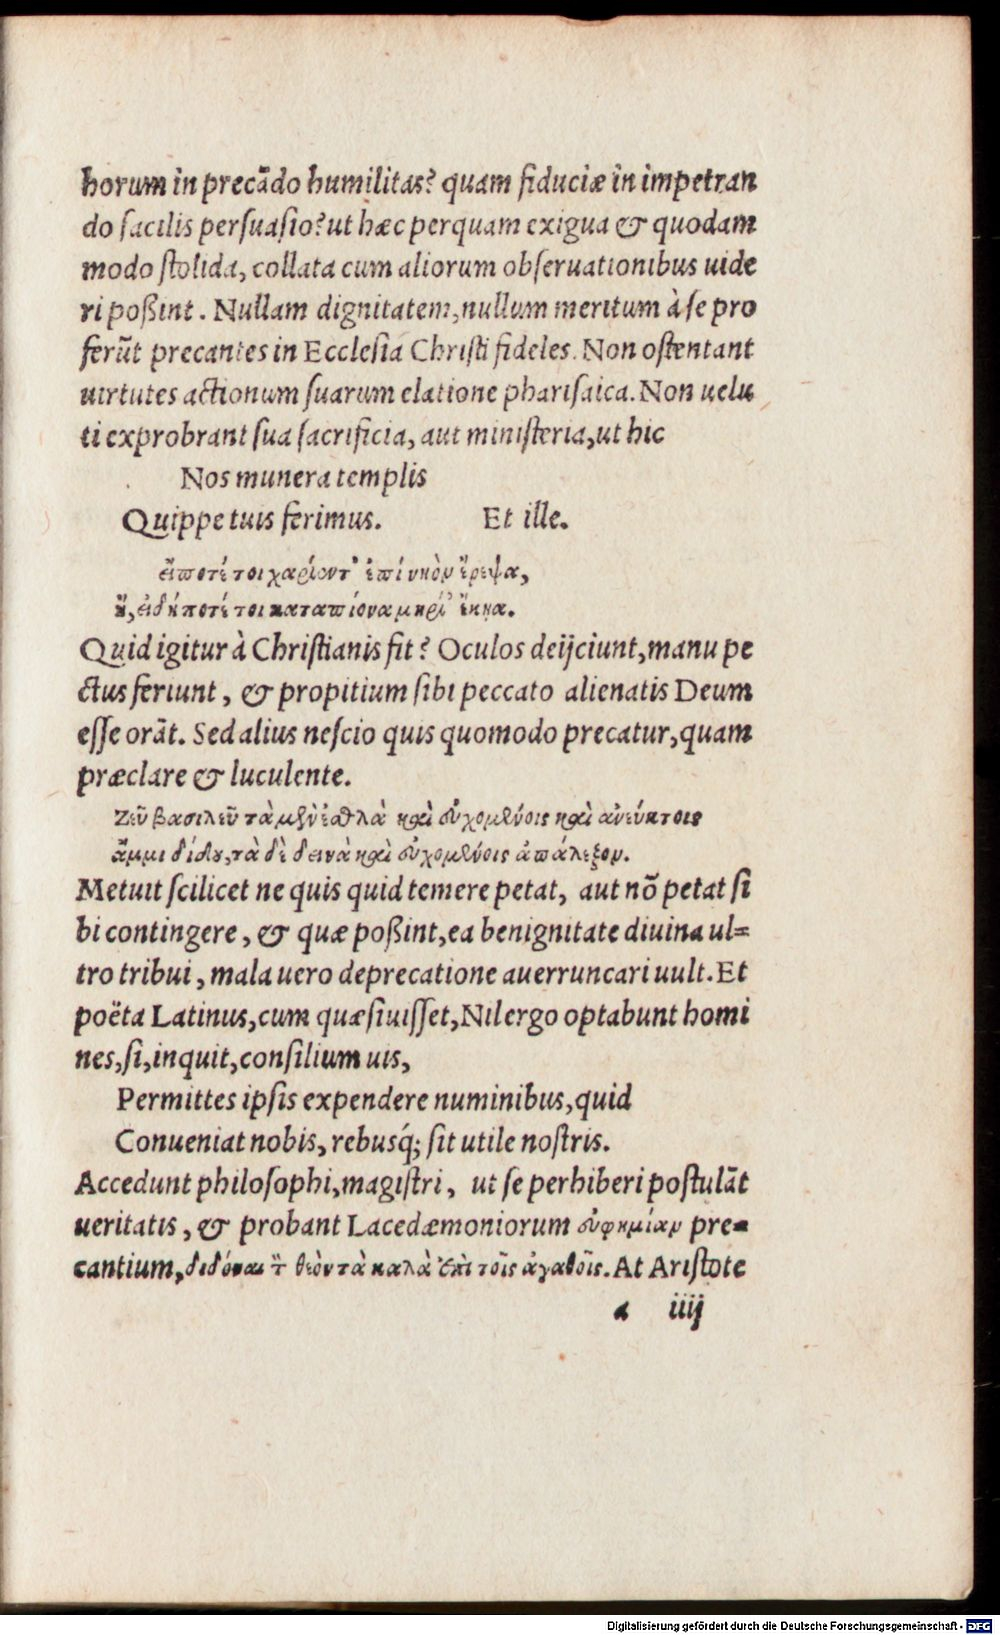 horum in precãdo humilitas? quam fiduciæ in impetran
do facilis persuasio? ut hæc perquam exigua & quodam
modo stolida, collata cum aliorum obseruationibus uide
ri poßint. Nullam dignitatem, nullum meritum à se pro
ferũt precantes in Ecclesia Christi fideles. Non ostentant
uirtutes actionum suarum elatione pharisaica. Non uelu
ti exprobrant sua sacrificia, aut ministeria, ut hic
Nos munera templis
Quippe tuis ferimus. Et ille.
εἴποτέ τοι χαρίεντ' ἐπί νηὸν ἔρεψα,
ἢ, εἰ δή ποτέ τοι κατα πίονα μηρί' ἔκηα.
Quid igitur à Christianis fit? Oculos deijciunt, manu pe
ctus feriunt, & propitium sibi peccato alienatis Deum
esse orãt. Sed alius nescio quis quomodo precatur, quam
præclare & luculente.
Ζεῦ βασιλεῦ τὰ μὲν ἐσθλὰ καὶ εὐχομένοις καὶ ἀνεύκτοις
ἄμμι δίδου, τὰ δὲ δεινὰ καὶ εὐχομένοις ἀπάλεξον.
Metuit scilicet ne quis quid temere petat, aut nõ petat si
bi contingere, & quæ poßint, ea benignitate diuina ul=
tro tribui, mala uero deprecatione auerruncari uult. Et
poëta Latinus, cum quæsiuisset, Nil ergo optabunt homi
nes, si, inquit, consilium uis,
Permittes ipsis expendere numinibus, quid
Conueniat nobis, rebusq́; sit utile nostris.
Accedunt philosophi, magistri, ut se perhiberi postulãt
ueritatis, & probant Lacedæmoniorum εὐφημίαν pre=
cantium, διδόναι τ θεὸν τὰ καλὰ ἐπὶ τοῖς ἀγαθοῖς. At Aristote
a iiij
Digitalisierung gefördert durch die Deutsche Forschungsgemeinschaft - DFG